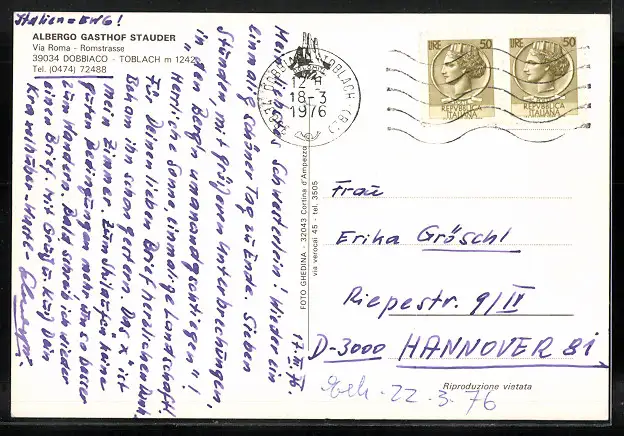 Italien - EWG!
ALBERGO GASTHOF STAUDER
Via Roma - Romstrasse
39034 DOBBIACO - TOBLACH m 1242
Tel. (0474) 72488
17. III. 76.
Mein Schwesterlein! Wieder ein
einmalig schöner Tag zu Ende. Sieben
Stunden, mit größeren Unterbrechungen,
"in den Berg'n umanandgstiegen"!
Herrliche Sonne, einmalige Landschaft!
Für Deinen lieben Brief herzlichen Dank.
Bekam ihn schon gestern. Das ist
mein Zimmer. Zum Skilaufen keine
guten Bedingungen mehr, um so besser
zum Wandern. Bald schreib ich wieder
einen Brief. Mit Gruß u. Kuß Dein
FOTO GHEDINA - 32043 Cortina d'Ampezzo
via verocai 45 - tel. 3505
39034 DOBBIACO TOBLACH (BZ)
12
18-3
1976
LIRE 50
REPVBBLICA
ITALIANA
LIRE 50
REPVBBLICA
ITALIANA
Frau
Erika Gröschl
Riepestr. 9/IV
D-3000 HANNOVER 81
Riproduzione vietata
22.3.76